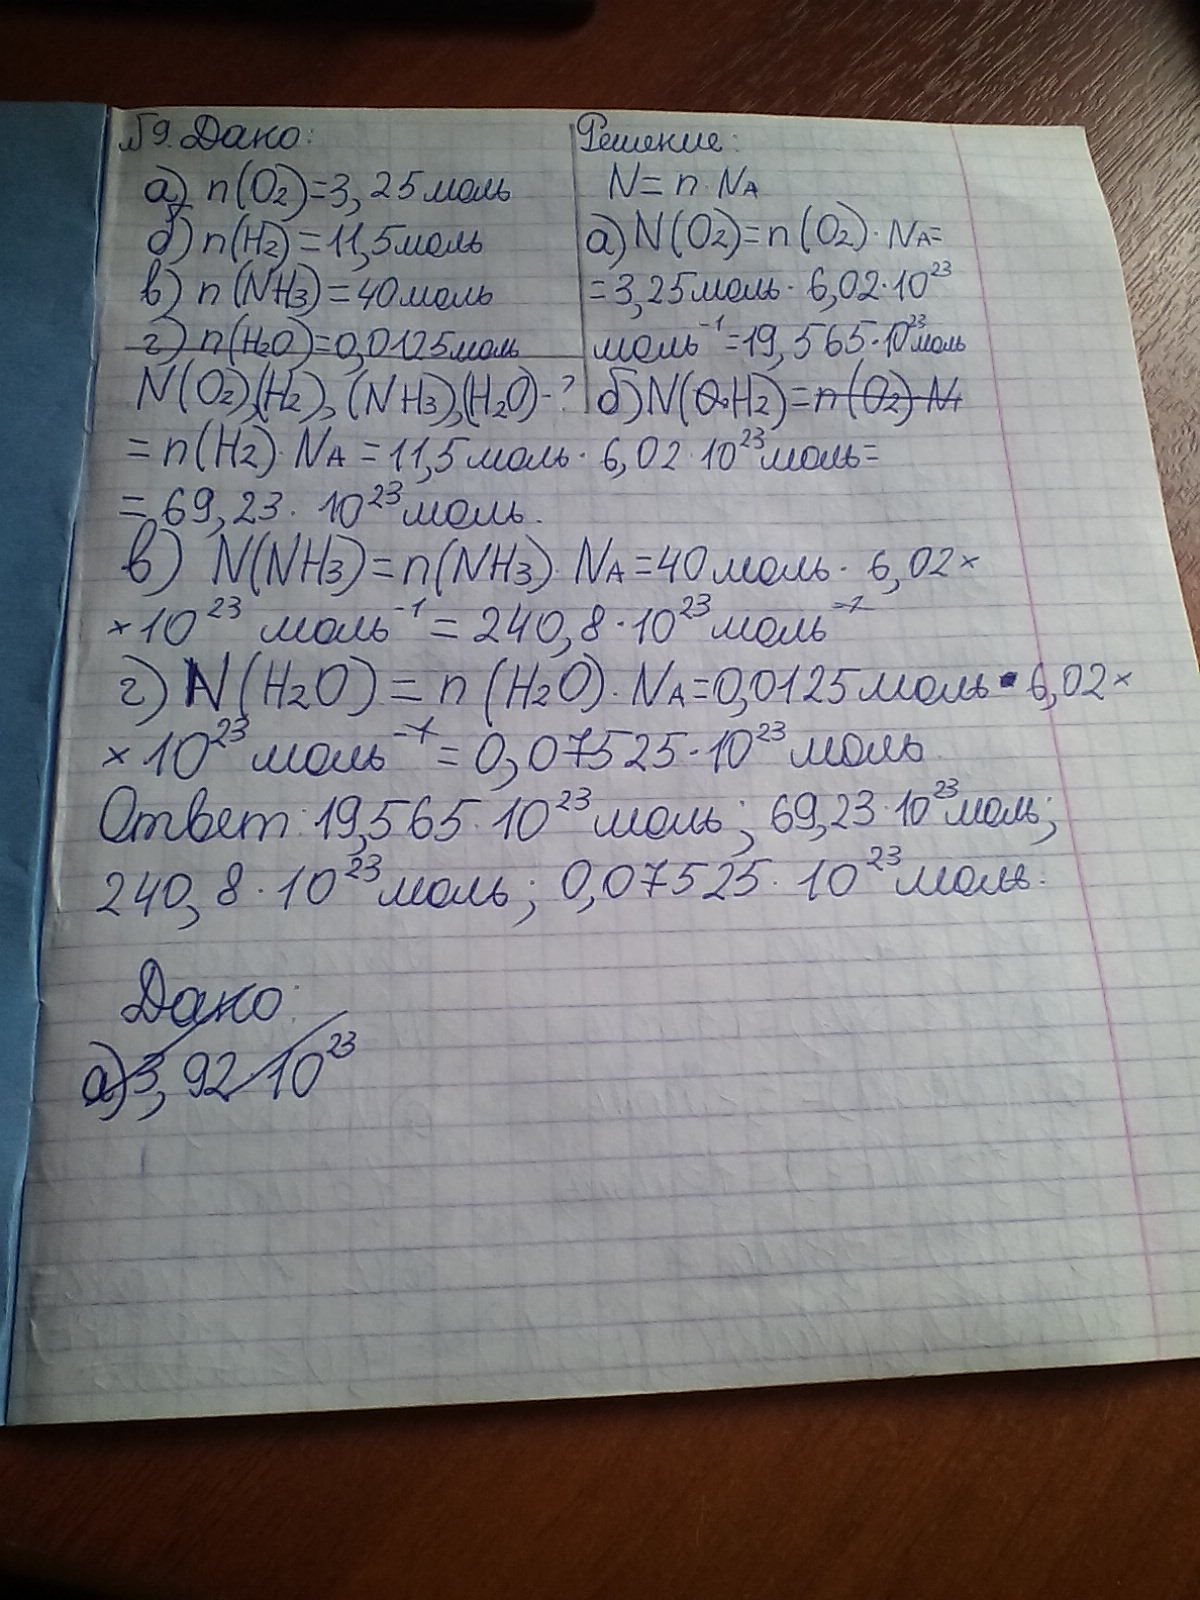 №9. Дано:
а) n(O₂)=3,25моль
б) n(H₂)=11,5моль
в) n(NH₃)=40моль
г) n(H₂O)=0,0125моль
N(O₂),(H₂),(NH₃),(H₂O)-?
Решение:
N=n·Nᴀ
а) N(O₂)=n(O₂)·Nᴀ=
=3,25моль·6,02·10²³
моль⁻¹=19,565·10²³моль
б) N(O₂H₂)=n(O₂)·N
=n(H₂)·Nᴀ=11,5моль·6,02·10²³моль=
=69,23·10²³моль.
в) N(NH₃)=n(NH₃)·Nᴀ=40моль·6,02×
×10²³моль⁻¹=240,8·10²³моль⁻¹
г) N(H₂O)=n(H₂O)·Nᴀ=0,0125моль·6,02×
×10²³моль⁻¹=0,07525·10²³моль.
Ответ: 19,565·10²³моль; 69,23·10²³моль;
240,8·10²³моль; 0,07525·10²³моль.
Дано:
а) 3,92·10²³